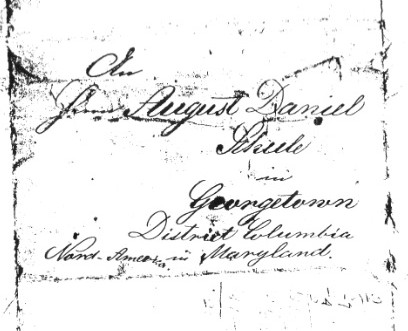 An
Herrn August Daniel
in
Georgetown
District Columbia
Nord-America in Maryland.